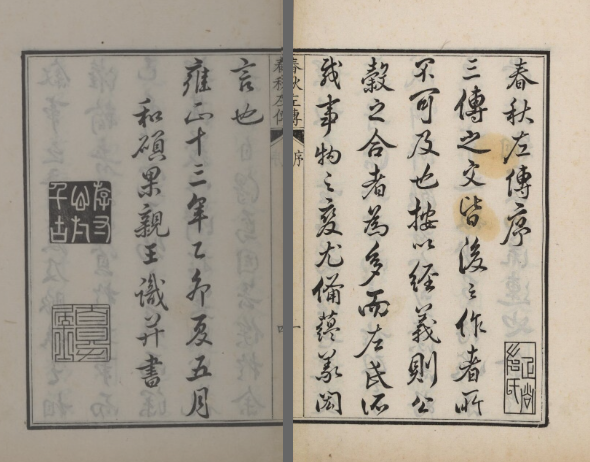 春秋左傳序
三傳之文皆後之作者所
不可及也按以經義則公
穀之合者為多而左氏所
載事物之變尤備蘊閎
春秋左傳
序
一
春秋左傳
四
言也
雍正十三年乙卯夏五月
和碩果親王識并書